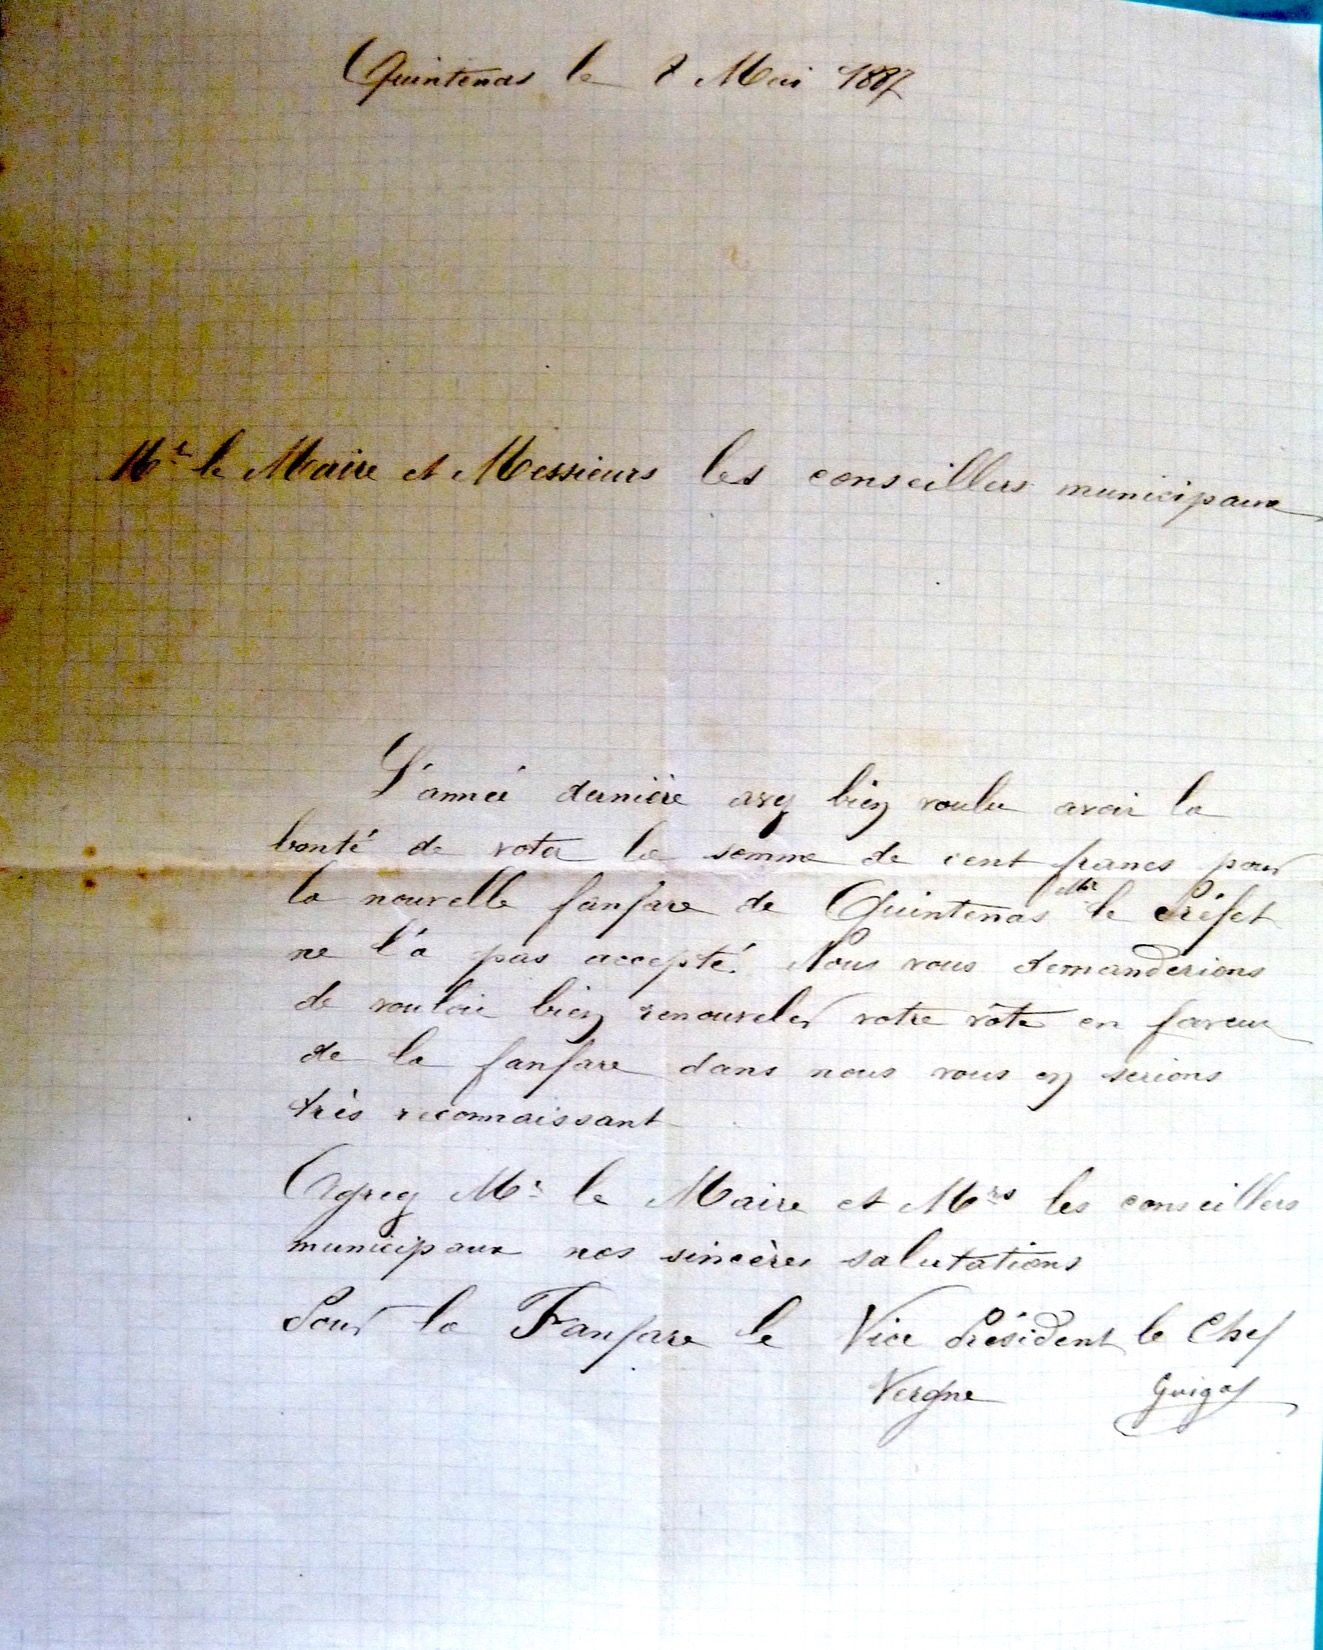 Quintenas le 8 Mai 1887
Mr le Maire et Messieurs les conseillers municipaux
L'année dernière avez bien voulu avoir la
bonté de voter la somme de cent francs pour
la nouvelle fanfare de Quintenas Mr le Préfet
ne l'a pas accepté. Nous vous demanderions
de vouloir bien renouveler votre vôte en faveur
de la fanfare dans nous vous en serions
très reconnaissant
Agréez Mr le Maire et Mrs les conseillers
municipaux nos sincères salutations
Pour la Fanfare le Vice Président le Chef
Vergne